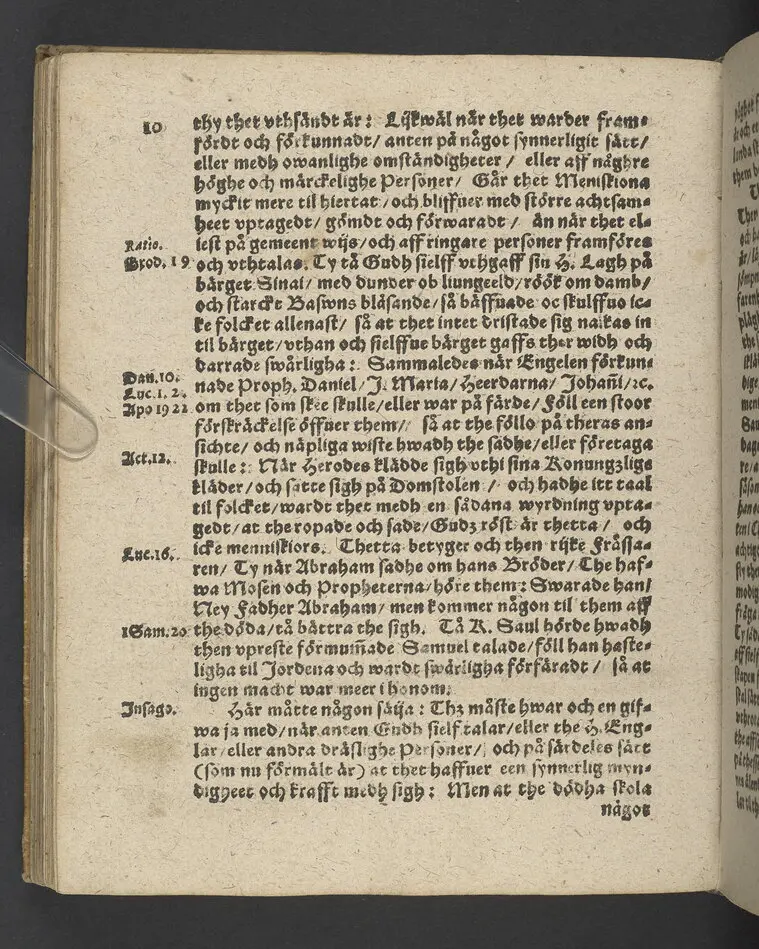 10
thy thet vthsändt är: Lijkwäl när thet warder fram-
fördt och förkunnadt/ anten på något synnerligit sätt/
eller medh owanlighe omständigheter/ eller aff någhre
höghe och märckelighe Personer/ Går thet Meniskiona
myckit mere til hiertat/ och bliffuer med större achtsam-
heet vptagedt/ gömdt och förwaradt/ än när thet el-
Ratio.
lest på gemeent wijs/ och aff ringare personer framföres
Exod. 19
och vthtalas. Ty tå Gudh sielff vthgaff sin H. Lagh på
bärget Sinai/ med dunder ob liungeeld/ röök om damb/
och starckt Baswns bläsande/ så bäffuade oc skulffuo ic-
ke folcket allenast/ så at thet intet dristade sig nalkas in
til bärget/ vthan och sielffue bärget gaffs ther widh och
darrade swårligha: Sammaledes när Engelen förkun-
Dan. 10.
nade Proph. Daniel/ J. Maria/ Heerdarna/ Johañi/ ꝛc.
Luc. 1. 2.
Apo 19 22
om thet som skee skulle/ eller war på färde/ Föll een stoor
förskräckelse öffuer them/ så at the föllo på theras an-
sichte/ och näpliga wiste hwadh the sadhe/ eller företaga
Act. 12.
skulle: När Herodes klädde sigh vthi sina Konungzlige
kläder/ och satte sigh på Domstolen/ och hadhe itt taal
til folcket/ wardt thet medh en sådana wyrdning vpta-
gedt/ at the ropade och sade/ Gudz röst är thetta/ och
icke menniskiors. Thetta betyger och then rijke Fråssa-
Luc. 16.
ren/ Ty när Abraham sadhe om hans Bröder/ The haf-
wa Mosen och Propheterna/ höre them: Swarade han/
Ney Fadher Abraham/ men kommer någon til them aff
1 Sam. 20
the döda/ tå bättra the sigh. Tå K. Saul hörde hwadh
then vpreste förmum̃ade Samuel talade/ föll han haste-
ligha til Jordena och wardt swårligha förfäradt/ så at
ingen macht war meer i honom.
Insago.
Här måtte någon säija: Thz måste hwar och en gif-
wa ja med/ när anten Gudh sielf talar/ eller the H. Eng-
lar/ eller andra dräslighe Personer/ och på särdeles sätt
(som nu förmält är) at thet haffuer een synnerlig myn-
digheet och krafft medh sigh: Men at the dödha skola
något